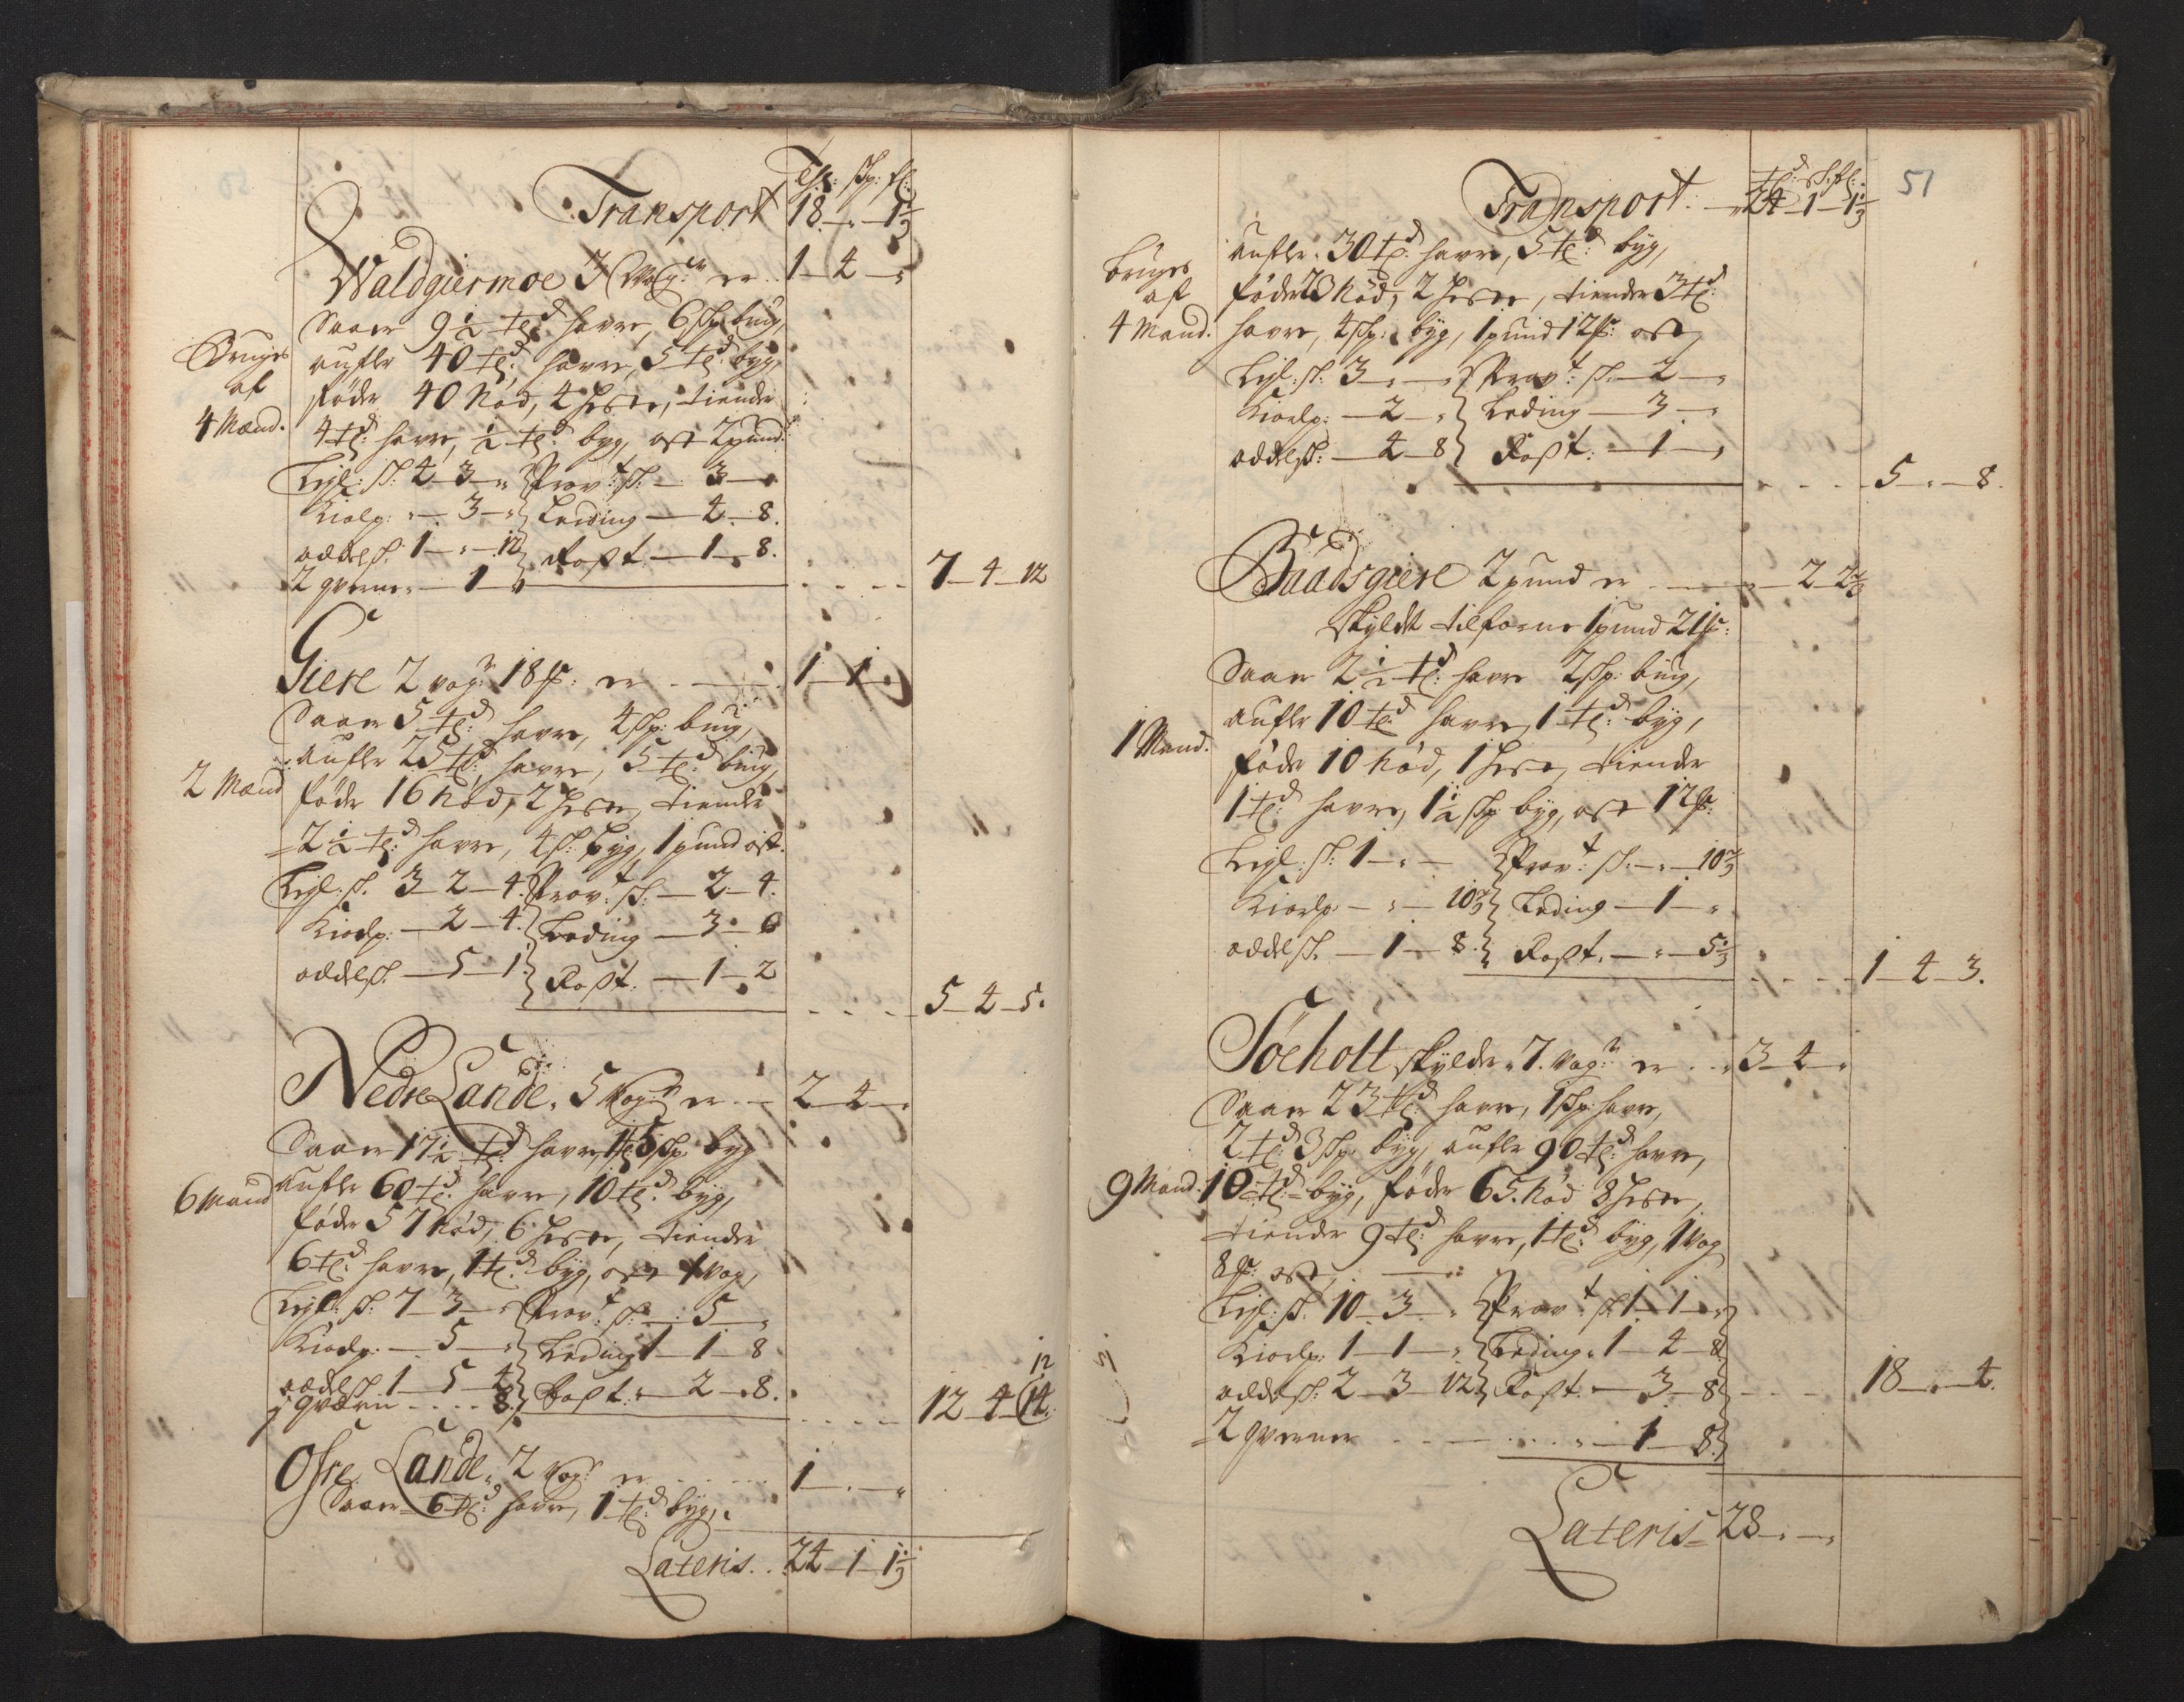 Transport 18 - „ - 1 1/3
Waldgiermoe 3 Wog er 1 - 4 - „
Saaer 9 1/2 td havre, 6 skp biug,
Bruges af 4 Mænd.
aufler 40 td: havre, 5 td: byg,
føder 40 Nød, 4 Hester, tiender
4 td: havre, 1/2 td: byg, ost 2 pund.
Leyl: sk: 4 - 3 - „ Prov:t sk: - 3 - „
Kiølp: „ - 3 - „ Leeding - 4 - 8.
oddelsk: 1 - „ - 12 Roßt. - 1 - 8.
2 qverne - 1 - „ 7 - 4 - 12
Giere 2 vog: 18 sk: er 1 - 1 - „
Saaer 5 td: havre, 4 skp: biug,
aufler 25 td: havre, 5 td: biug,
2 Mænd
føder 16 Nød, 2 Hester, tiender
2 1/2 td: havre, 4 sk: byg, 1 pund ost.
Leyl: sk. 3 - 2 - 4. Prov:t sk: - 2 - 4.
Kiørlp: - 2 - 4. Leding - 3 - 6
oddelsk. - 5 - 1 Roßt. - 1 - 2
5 - 4 - 5.
Nedre Lande. 5 Vog er 2 - 4 - „
Saaer 17 1/2 td: havre, 1 td 5 skp byg
6 Mænd
aufler 60 td: havre, 10 td: byg,
føder 57 Nød, 6 Hester, tiender
6 td: havre, 1 td: byg, ost 1 Vog,
Leyl: sk: 7 - 3 - „ Prov:t sk: - 5 - „
Kiørlp: - 5 - „ Leding 1 - 1 - 8
oddelsk 1 - 5 - 4 Roßt. - 2 - 8.
1 qværn - - 8. 12 - 4 - 14. 12
Ofre Lande. 2 Vog: er 1 - „ - „
Saaer 6 td: havre, 1 td: byg,
Lateris. 24 - 1 - 1 1/3
51
Transport. 24 - 1 - 1 1/3
aufler 30 td: havre, 5 td: byg,
Bruges af 4 Mænd.
føder 23 Nød, 2 Hester, tiender 3 td:
havre, 4 skp: byg, 1 pund 12 sk: ost
Leyl: sk: 3 - „ - „ Prov:t sk. - 2 - „
Kiørlp: - 2 - „ Leding - 3 - „
oddelsk: - 4 - 8 Roßt: - 1 - „
5 - „ - 8.
Baadsgiere 2 pund er „ - 2 - 2 2/3
skyldt tilforne 1 pund 21 sk:
Saaer 2 1/2 td: havre 2 skp: biug,
aufler 10 td havre, 1 td: byg,
1 Mand.
føder 10 Nød, 1 Hest, tiender
1 td: havre, 1 1/2 skp byg, ost 12 sk:
Leyl: sk: 1 - „ - Prov:t sk. - „ - 10 2/3
Kiørlp - „ - 10 2/3 Leding - 1 - „
oddelsk. - 1 - 8. Roßt. - „ - 5 1/3
1 - 4 - 3.
Søeholt skylder 7. vog: er 3 - 4 - „
Saaer 23 td: havre, 1 skp: havre,
2 td: 3 skp: byg, aufler 90 td: havre,
9 Mænd.
10 td: byg, føder 65. Nød 8 Hester,
tiender 9 td: havre, 1 td: byg, 1 Vog
8 sk: ost,
Leyl: sk: 10 - 3 - „ Prov:t sk. 1 - 1 - „
Kiørlp: 1 - 1 - „ Leding. 1 - 4 - 8
oddelsk: 2 - 3 - 12 Roßt. - 3 - 8
18 - „ - 4.
2 qverner - 1 - 8.
Lateris 28 - „ - „